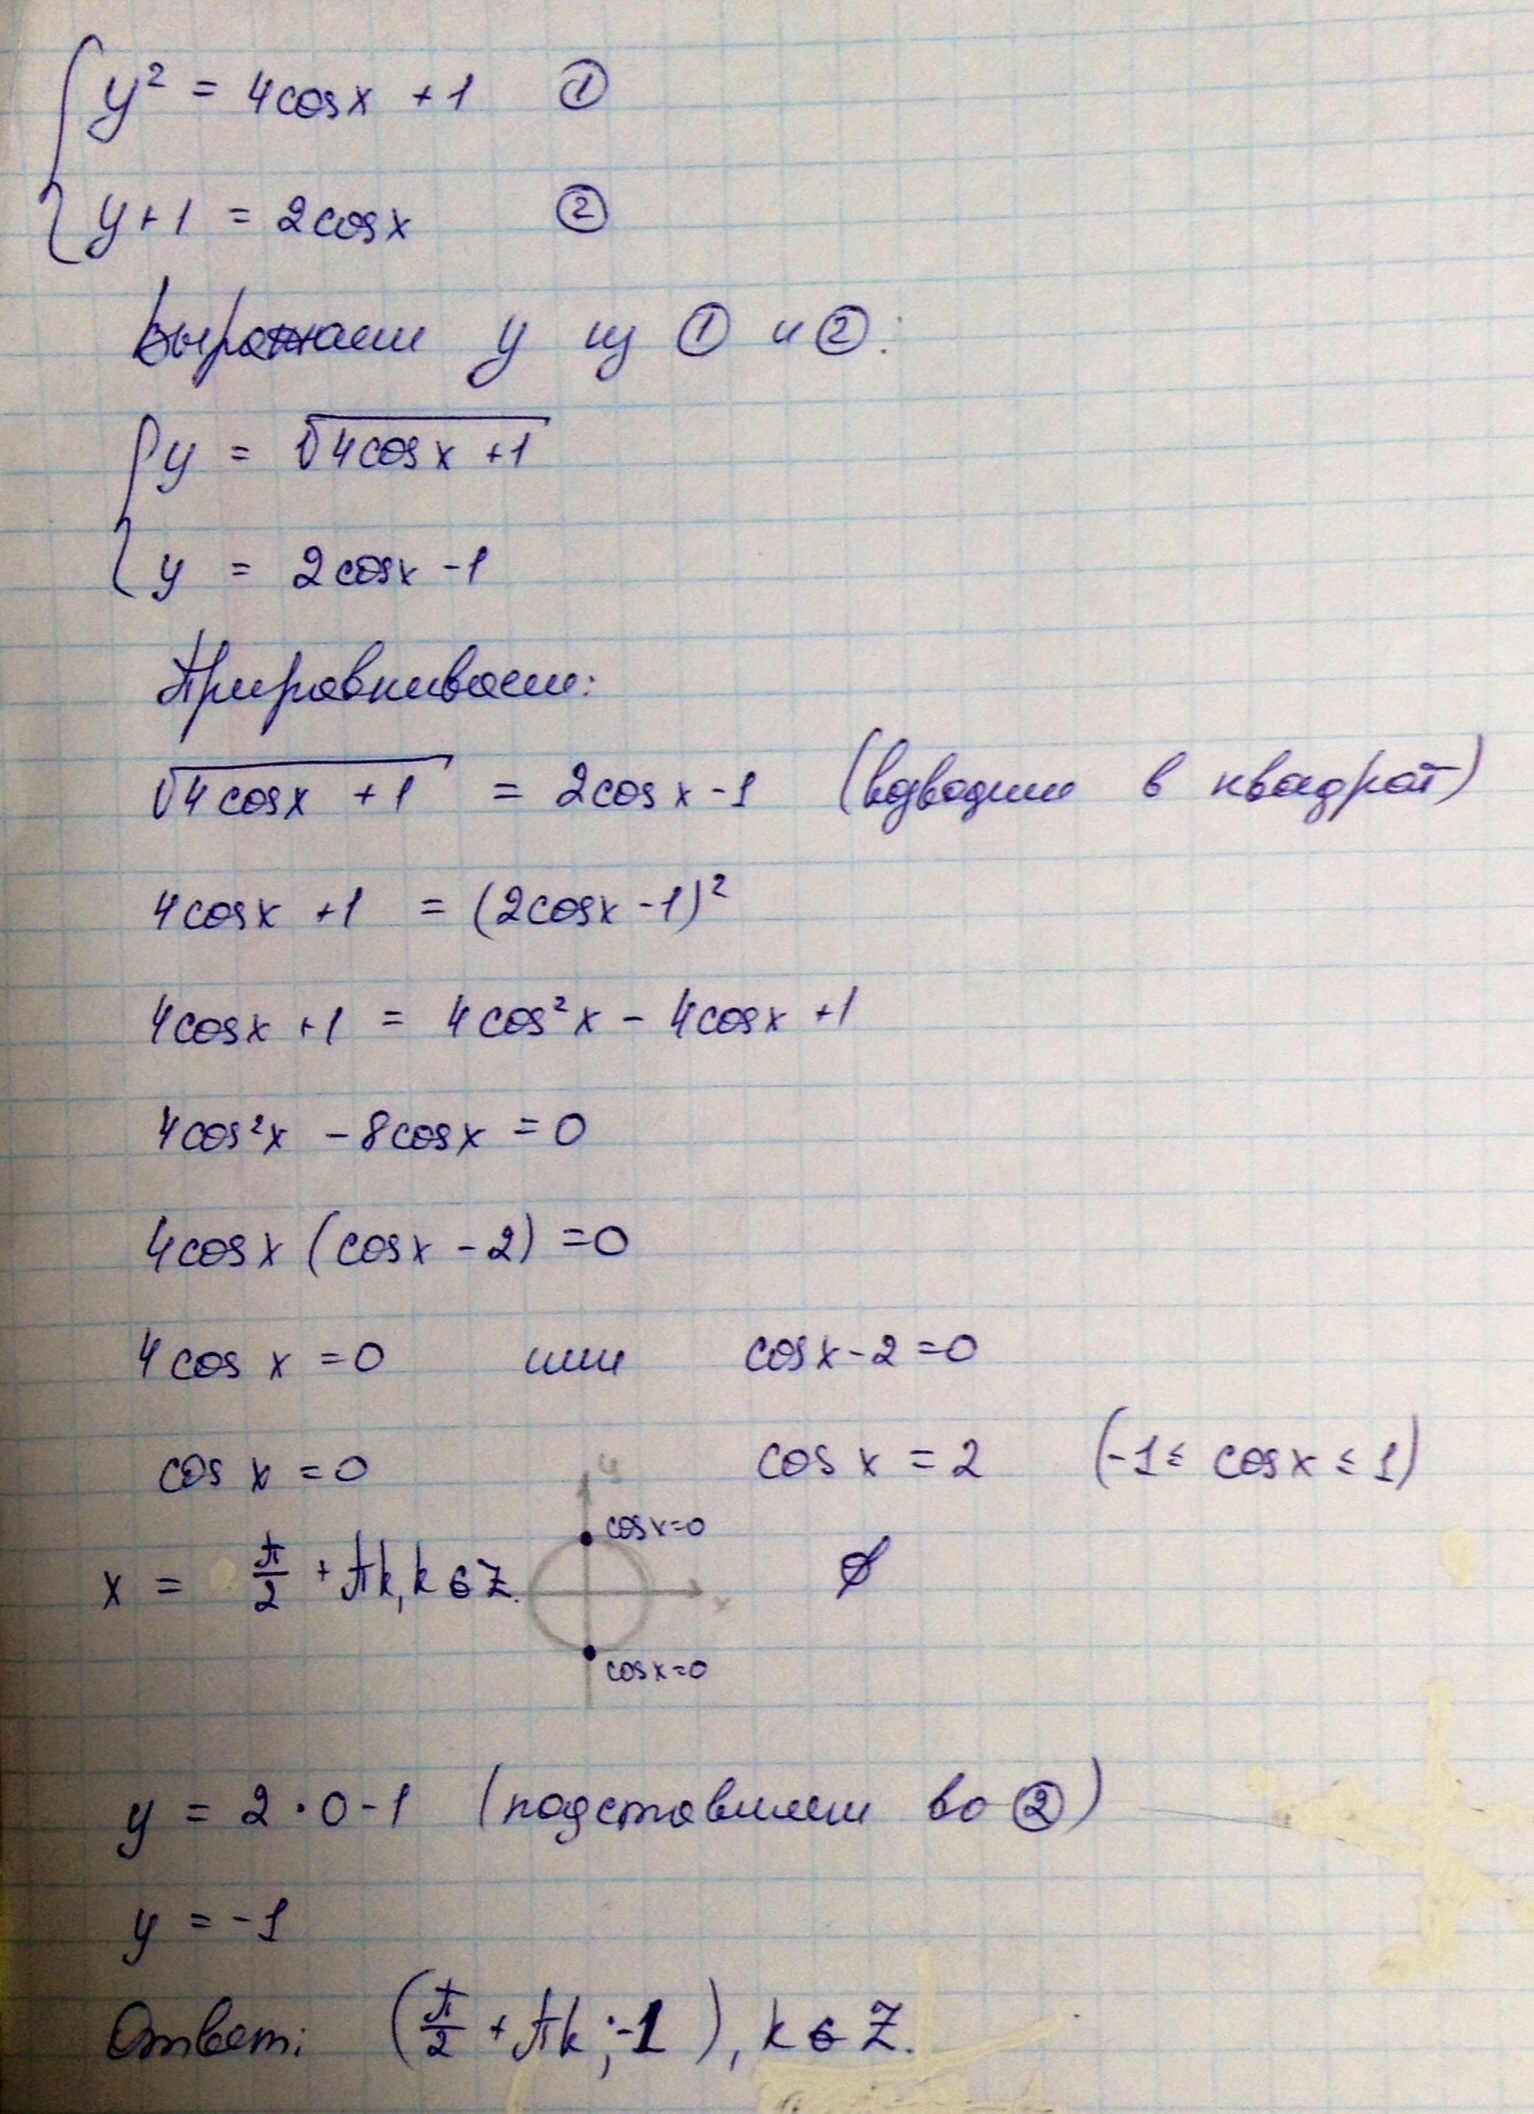 y² = 4cosx + 1 ①
y+1 = 2cosx ②
Выражаем y из ① и ②:
y = √4cosx + 1
y = 2cosx - 1
Приравниваем:
√4cosx + 1 = 2cosx - 1 (возводим в квадрат)
4cosx + 1 = (2cosx - 1)²
4cosx + 1 = 4cos²x - 4cosx + 1
4cos²x - 8cosx = 0
4cosx (cosx - 2) = 0
4cosx = 0 или cosx - 2 = 0
cosx = 0 cosx = 2 (-1 ≤ cosx ≤ 1)
y
cosx=0
x = π/2 + πk, k ∈ Z. x ∅
cosx=0
y = 2·0 - 1 (подставляем во ②)
y = -1
Ответ: (π/2 + πk; -1), k ∈ Z.